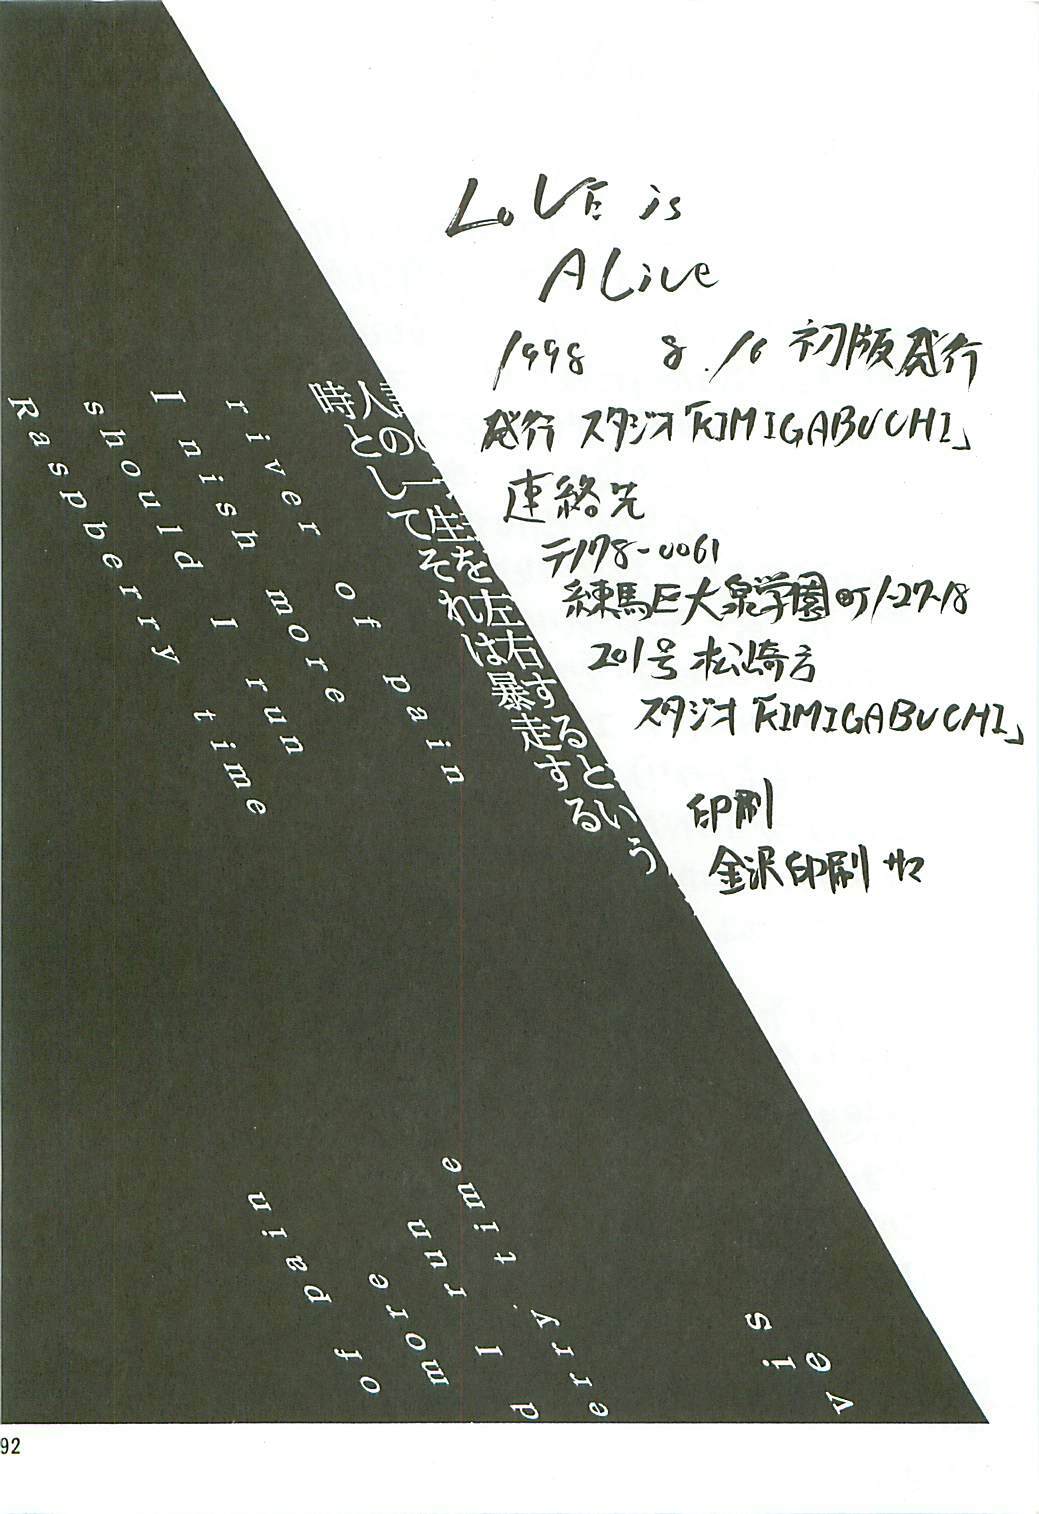 LOVE is
ALive
1998 8.16 初版発行
発行 スタジオ「KIMIGABUCHI」
連絡先
〒178-0061
練馬区大泉学園町1-27-18
201号 松崎方
スタジオ「KIMIGABUCHI」
印刷
金沢印刷サマ
人の一生を左右するという
時としてそれは暴走する
river of pain
I nish more
should I run
Raspberry time
of pain
more
d I run
erry. time
ve is
92